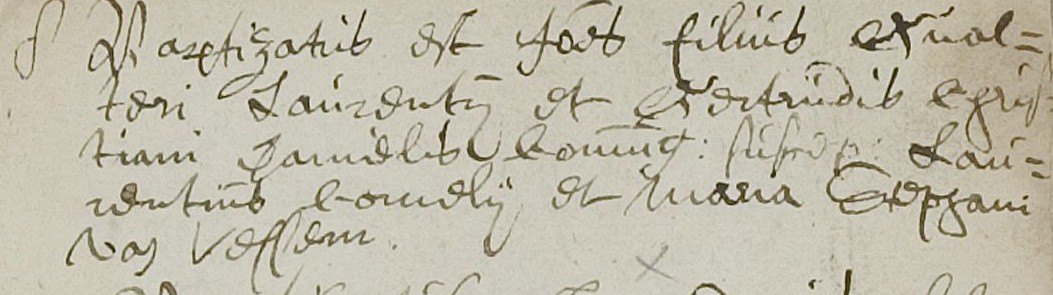 8 Baptizatus est Joes filius Gual=
teri Laurentij et Gertrudis Chris-
tiani Danielis coniug: suscep: Lau=
rentius Cornelij et Maria Stephani
van Vessem.